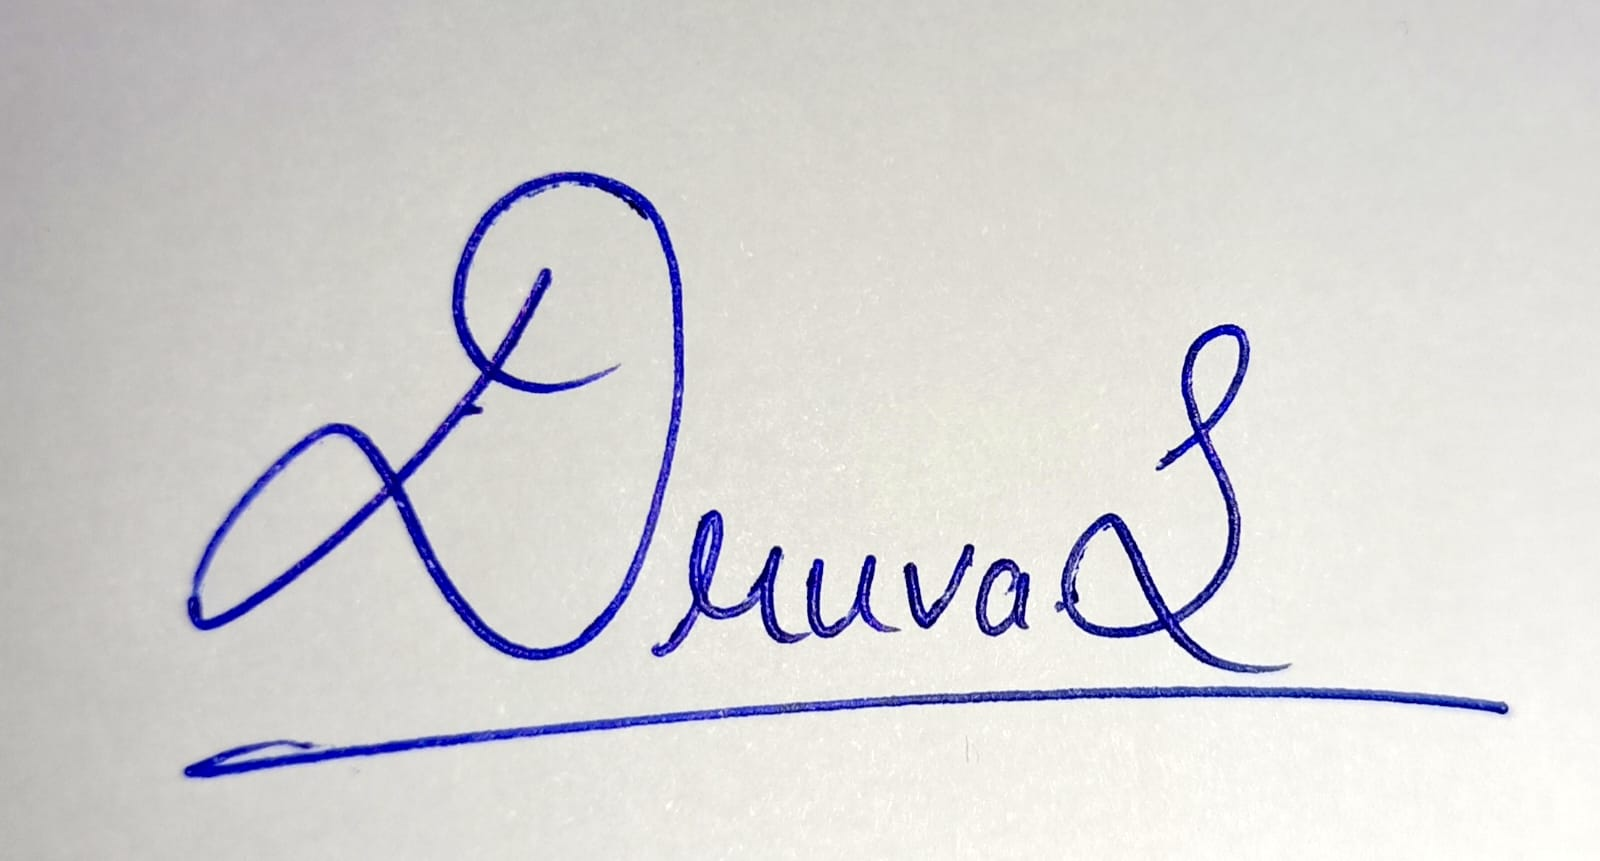 Druva S